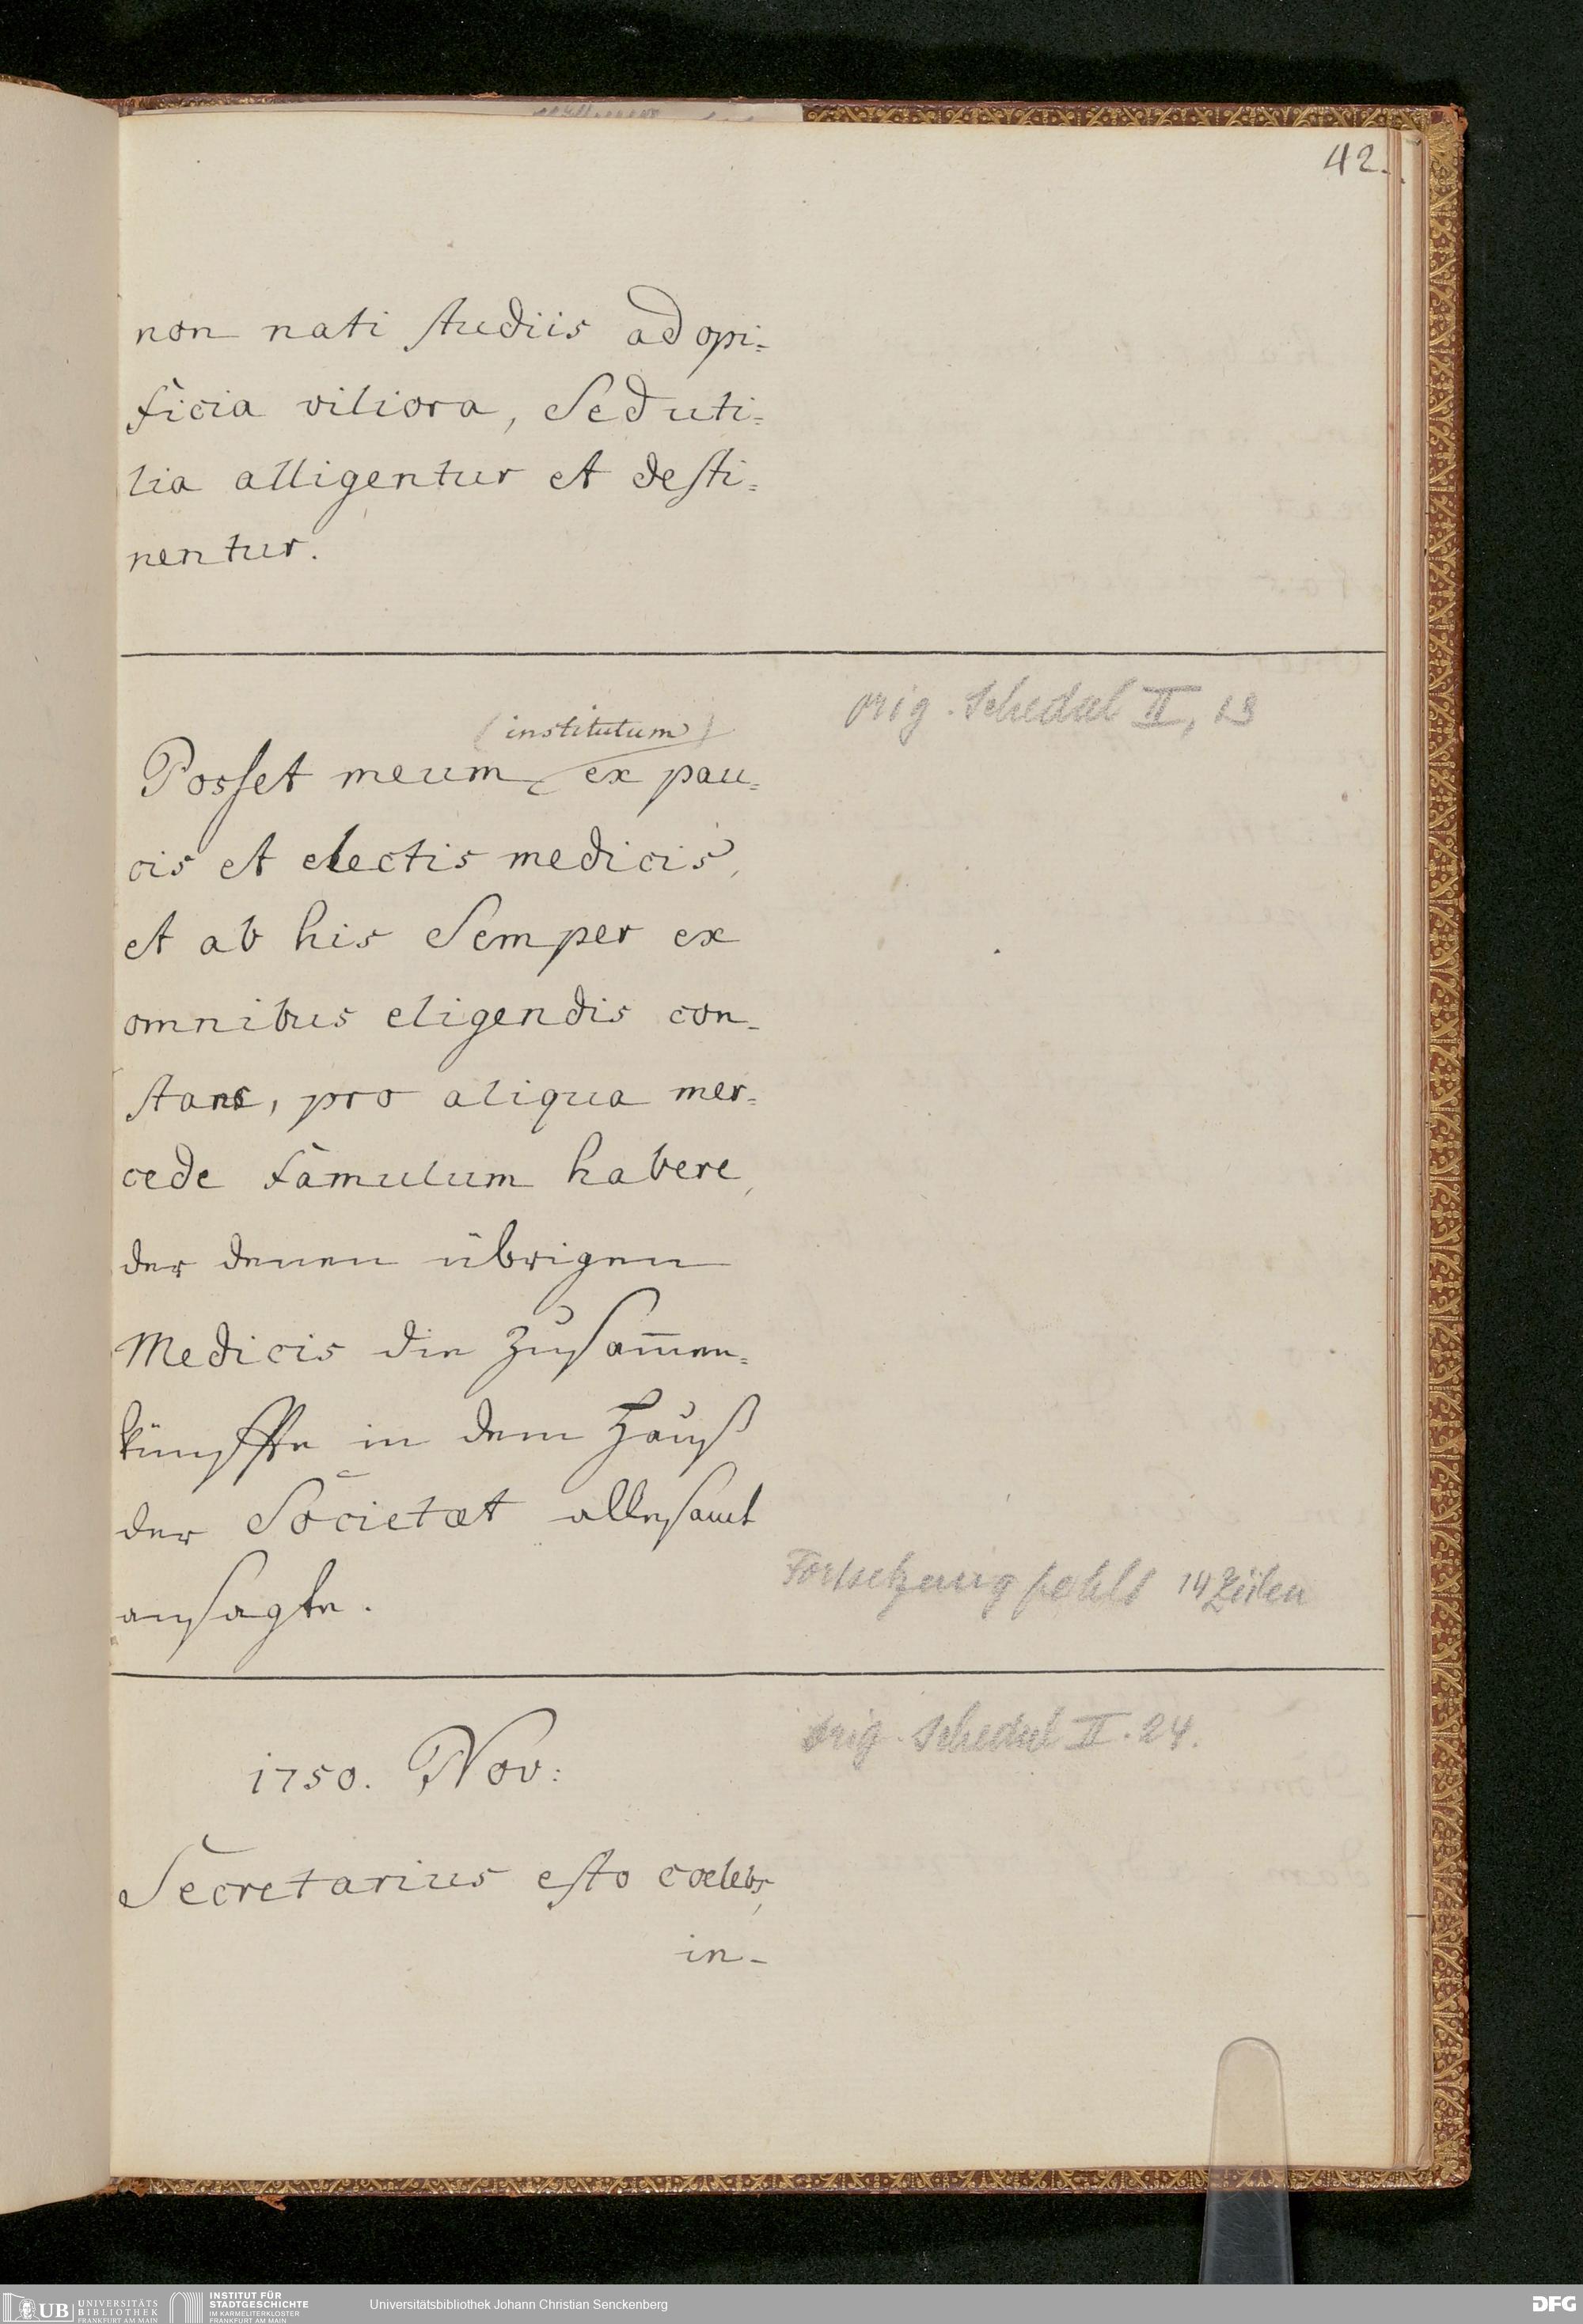 42.
non nati studiis ad opi=
ficia viliora, sed uti=
lia alligentur et desti=
nentur.
orig. Schedul II, 13
(institutum)
Posset meum ex pau=
cis et electis medicis,
et ab his semper ex
omnibus eligendis con=
stans, pro aliqua mer=
cede famulum habere,
der denen übrigen
Medicis die Zusam̄en=
künffte in dem Hauß
der Societæt allesamt
ansagte.
Fortsetzung fehlt 14 Zeilen
orig. Schedul II. 24.
1750. Nov:
Secretarius esto coelebs,
in-
UB UNIVERSITÄTS
BIBLIOTHEK
FRANKFURT AM MAIN
INSTITUT FÜR
STADTGESCHICHTE
IM KARMELITERKLOSTER
FRANKFURT AM MAIN
Universitätsbibliothek Johann Christian Senckenberg
DFG